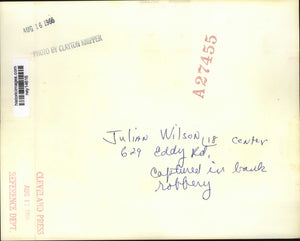 AUG 16 1966
PHOTO BY CLAYTON KNIPPER
A27455
Julian Wilson, 18 center
629 Eddy Rd,
captured in bank
robbery
CLEVELAND PRESS
AUG 17
REFERENCE DEPT.